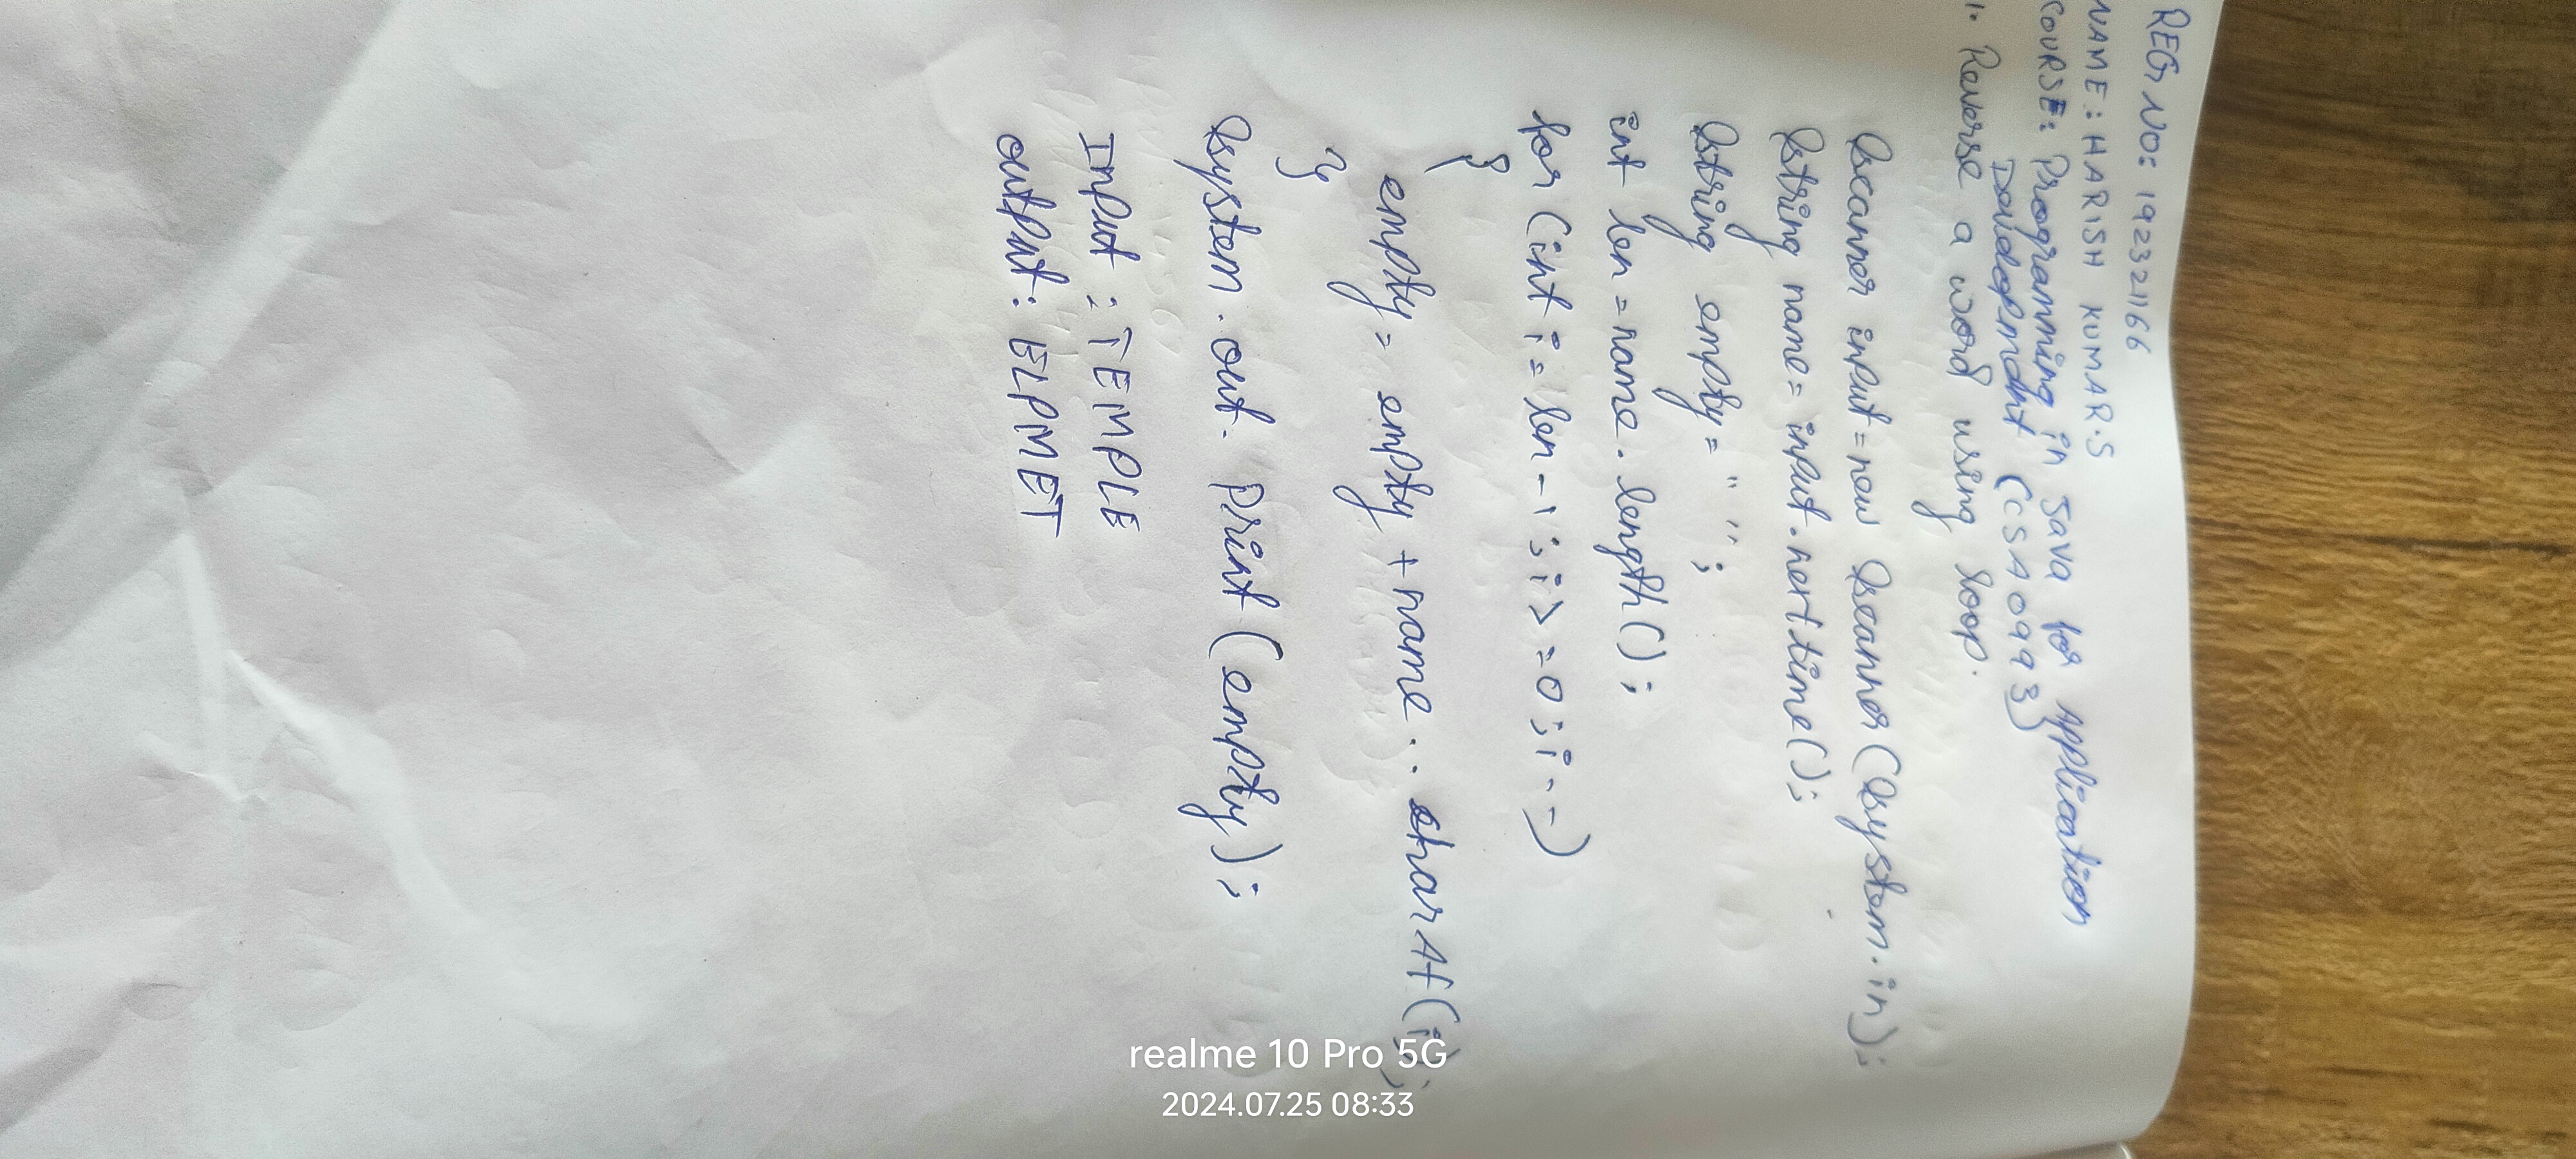 REG NO: 192321166
NAME: HARISH KUMAR.S
COURSE: Programming in Java for application
Development (CSA0993)
1. Reverse a word using loop.
Scanner input = new Scanner(System.in);
String name = input.nextLine();
String empty = " ";
int len = name.length();
for (int i = len-1; i>=0; i--)
{
empty = empty + name..charAt(i);
}
System.out.print(empty);
Input : TEMPLE
output: ELPMET
realme 10 Pro 5G
2024.07.25 08:33